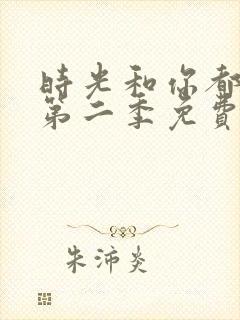 時光和你都
第二季免費
朱沛炎